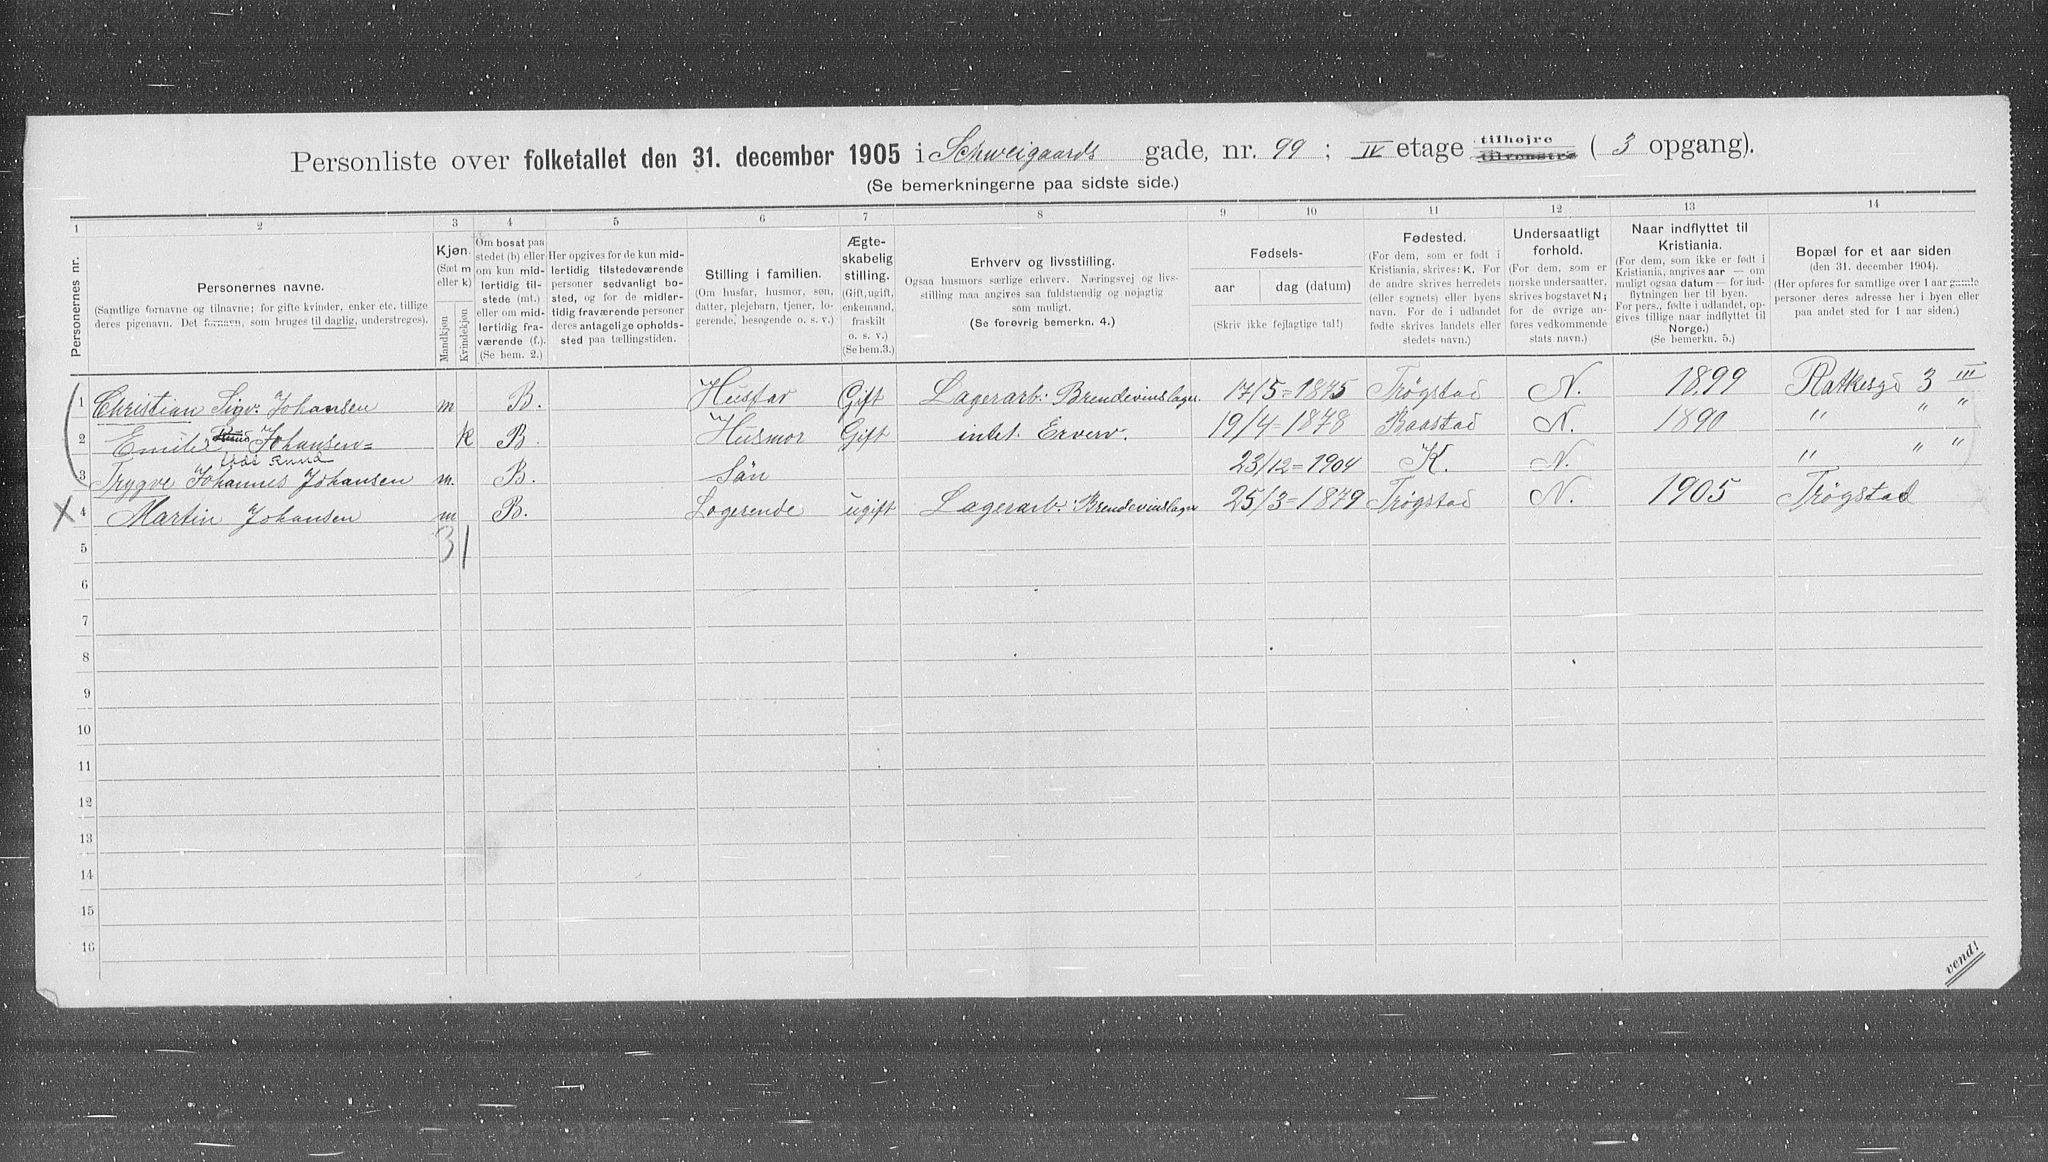 Personliste over folketallet den 31. december 1905 i Schweigaards gade, nr. 99 ; IV etage tilhøjre tilvenstre ( 3 opgang).
(Se bemerkningerne paa sidste side.)
1 2 3 4 5 6 7 8 9 10 11 12 13 14
Personernes nr.
Personernes navne.
(Samtlige fornavne og tilnavne; for gifte kvinder, enker etc. tillige
deres pigenavn. Det fornavn, som bruges til daglig, understreges).
Kjøn.
(Sæt m
eller k)
Mandkjøn
Kvindekjøn
Om bosat paa
stedet (b) eller
om kun mid-
lertidig til-
stede (mt.)
eller om mid-
lertidig fra-
værende (f.).
(Se bem. 2.)
Her opgives for de kun mid-
lertidig tilstedeværende
personer sedvanligt bo-
sted, og for de midler-
tidig fraværende personer
deres antagelige opholds-
sted paa tællingstiden.
Stilling i familien.
(Om husfar, husmor, søn,
datter, plejebarn, tjener, lo-
gerende, besøgende o. s. v.)
Ægte-
skabelig
stilling.
(Gift, ugift,
enkemand,
fraskilt
o. s. v.)
(Se bem.3.)
Erhverv og livsstilling.
Ogsaa husmors særlige erhverv. Næringsvej og livs-
stilling maa angives saa fuldstændig og nøjagtig
som muligt.
(Se forøvrig bemerkn. 4.)
Fødsels-
aar dag (datum)
(Skriv ikke fejlagtige tal!)
Fødested.
(For dem, som er født i
Kristiania, skrives: K. For
de andre skrives herredets
(eller sognets) eller byens
navn. For de i udlandet
fødte skrives landets eller
stedets navn.)
Undersaatligt
forhold.
(For dem, som er
norske undersaatter,
skrives bogstavet N;
for de øvrige an-
føres vedkommende
stats navn.)
Naar indflyttet til
Kristiania.
(For dem, som ikke er født i
Kristiania, angives aar — om
muligt ogsaa datum — for ind-
flytningen her til byen.
For pers., fødte i udlandet, op-
gives tillige naar indflyttet til
Norge.)
(Se bemerkn. 5.)
Bopæl for et aar siden
(den 31. december 1904).
(Her opføres for samtlige over 1 aar gamle
personer deres adresse her i byen eller
paa andet sted for 1 aar siden.)
1 Christian Sigv. Johansen m B. Husfar Gift Lagerarb: Brendevinslager. 17/5=1875 Trøgstad N. 1899 Ratkesgd 3 III
2 Emilie Johansen= k B. Husmor Gift intet Erverv. 19/4=1878 Baastad N. 1890 " " "
3 Trygve Johannes Johansen m. B. Søn 23/12=1904 K. N. " " "
4 Martin Johansen m B. Logerende ugift Lagerarb: Brendevinslager 25/3=1879 Trøgstad N. 1905 Trøgstad
3 1
5
6
7
8
9
10
11
12
13
14
15
16
vend!